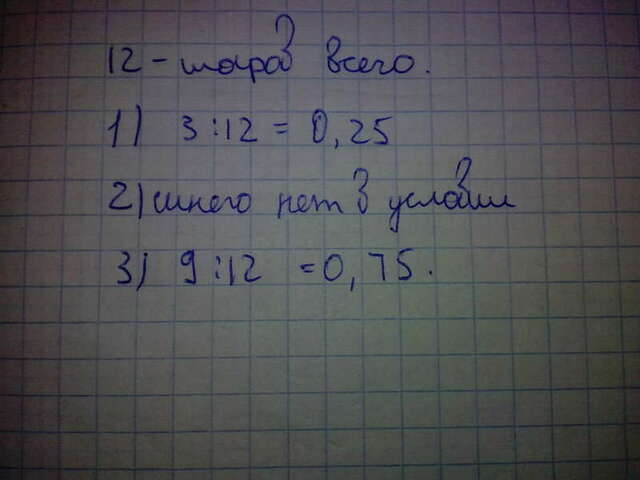 12 - шаров всего.
1) 3 : 12 = 0,25
2) синего нет в условии
3) 9 : 12 = 0,75.